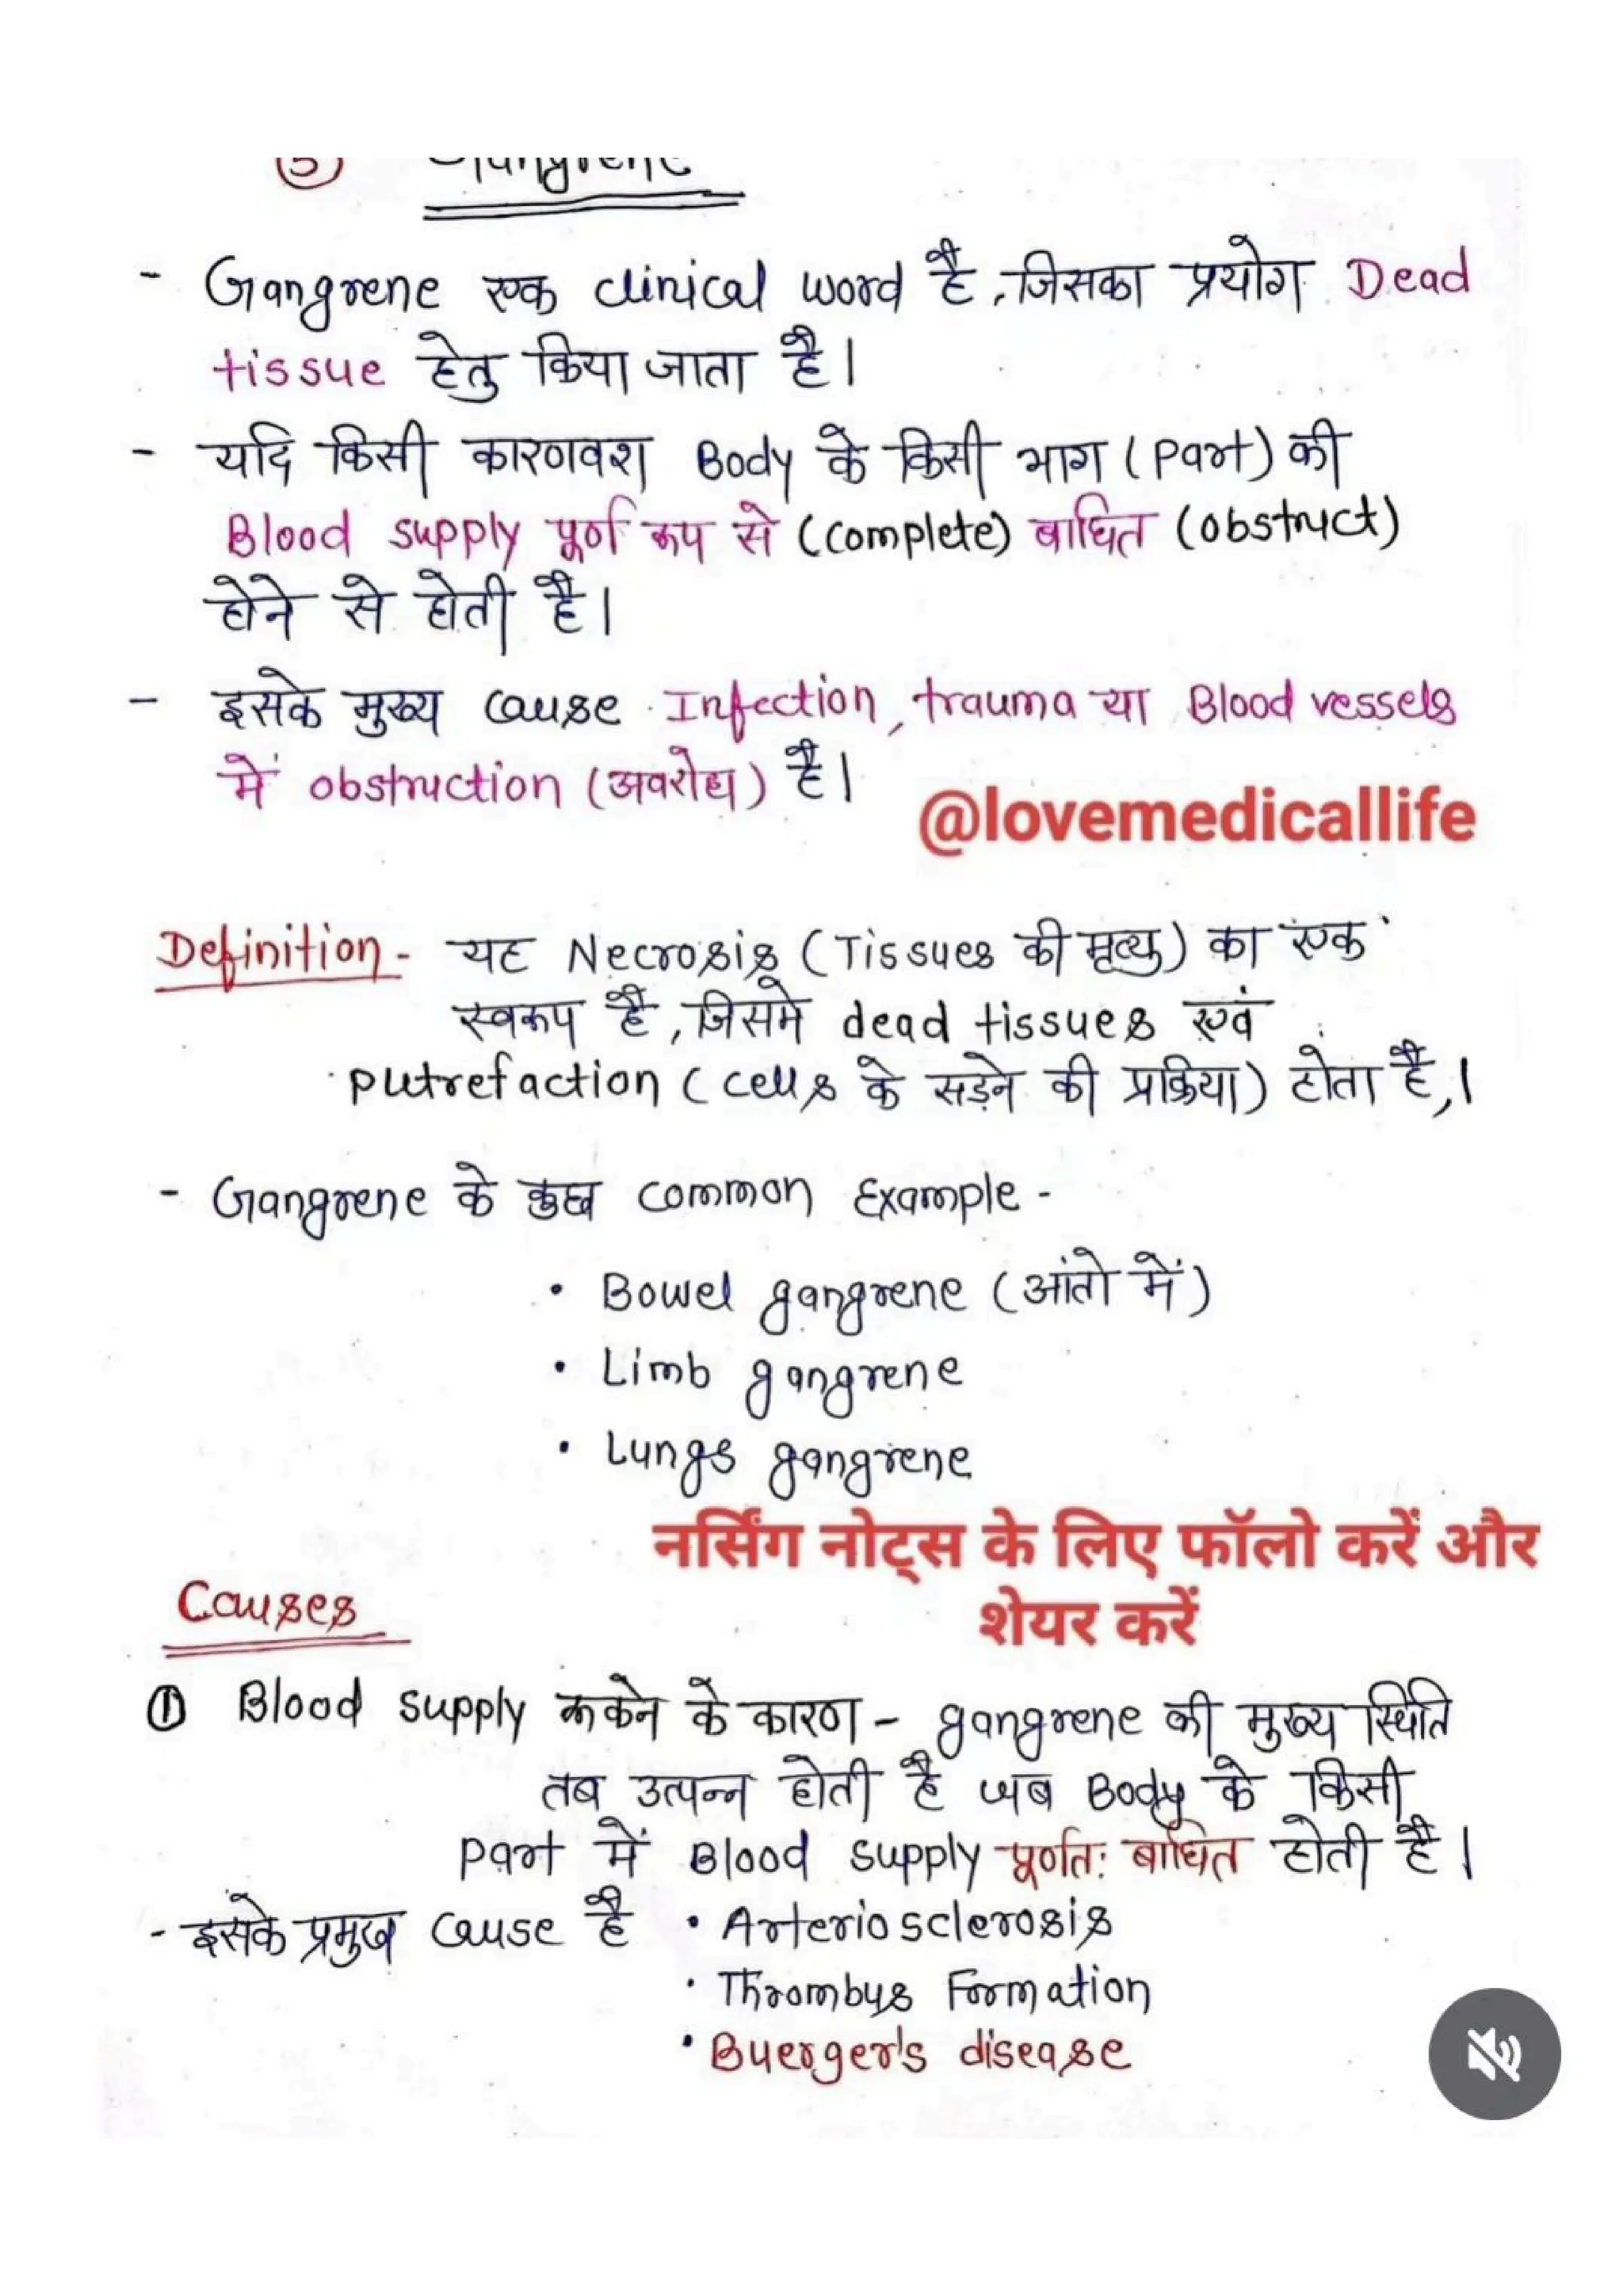 ③ Gangrene
- Gangrene एक clinical word है, जिसका प्रयोग Dead
tissue हेतु किया जाता है।
- यदि किसी कारणवश Body के किसी भाग (Part) की
Blood supply पूर्ण रूप से (complete) बाधित (obstruct)
होने से होती है।
- इसके मुख्य cause Infection, trauma या Blood vessels
में obstruction (अवरोध) है।
@lovemedicallife
Definition - यह Necrosis (Tissues की मृत्यु) का एक
स्वरूप है, जिसमे dead tissues एवं
putrefaction (cells के सड़ने की प्रक्रिया) होता है,।
- Gangrene के कुछ common Example -
• Bowel gangrene (आंतो में)
• Limb gangrene
• Lungs gangrene
नर्सिंग नोट्स के लिए फॉलो करें और
शेयर करें
Causes
① Blood supply रूकने के कारण - gangrene की मुख्य स्थिति
तब उत्पन्न होती है जब Body के किसी
part में Blood supply पूर्णतः बाधित होती है।
- इसके प्रमुख cause है • Arteriosclerosis
• Thrombus Formation
• Buerger's disease